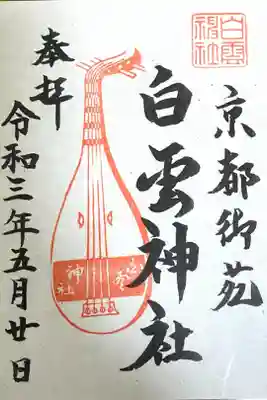 白雲
神社
京都御苑
白雲神社
奉拝
令和三年五月廿日
白雲
神社